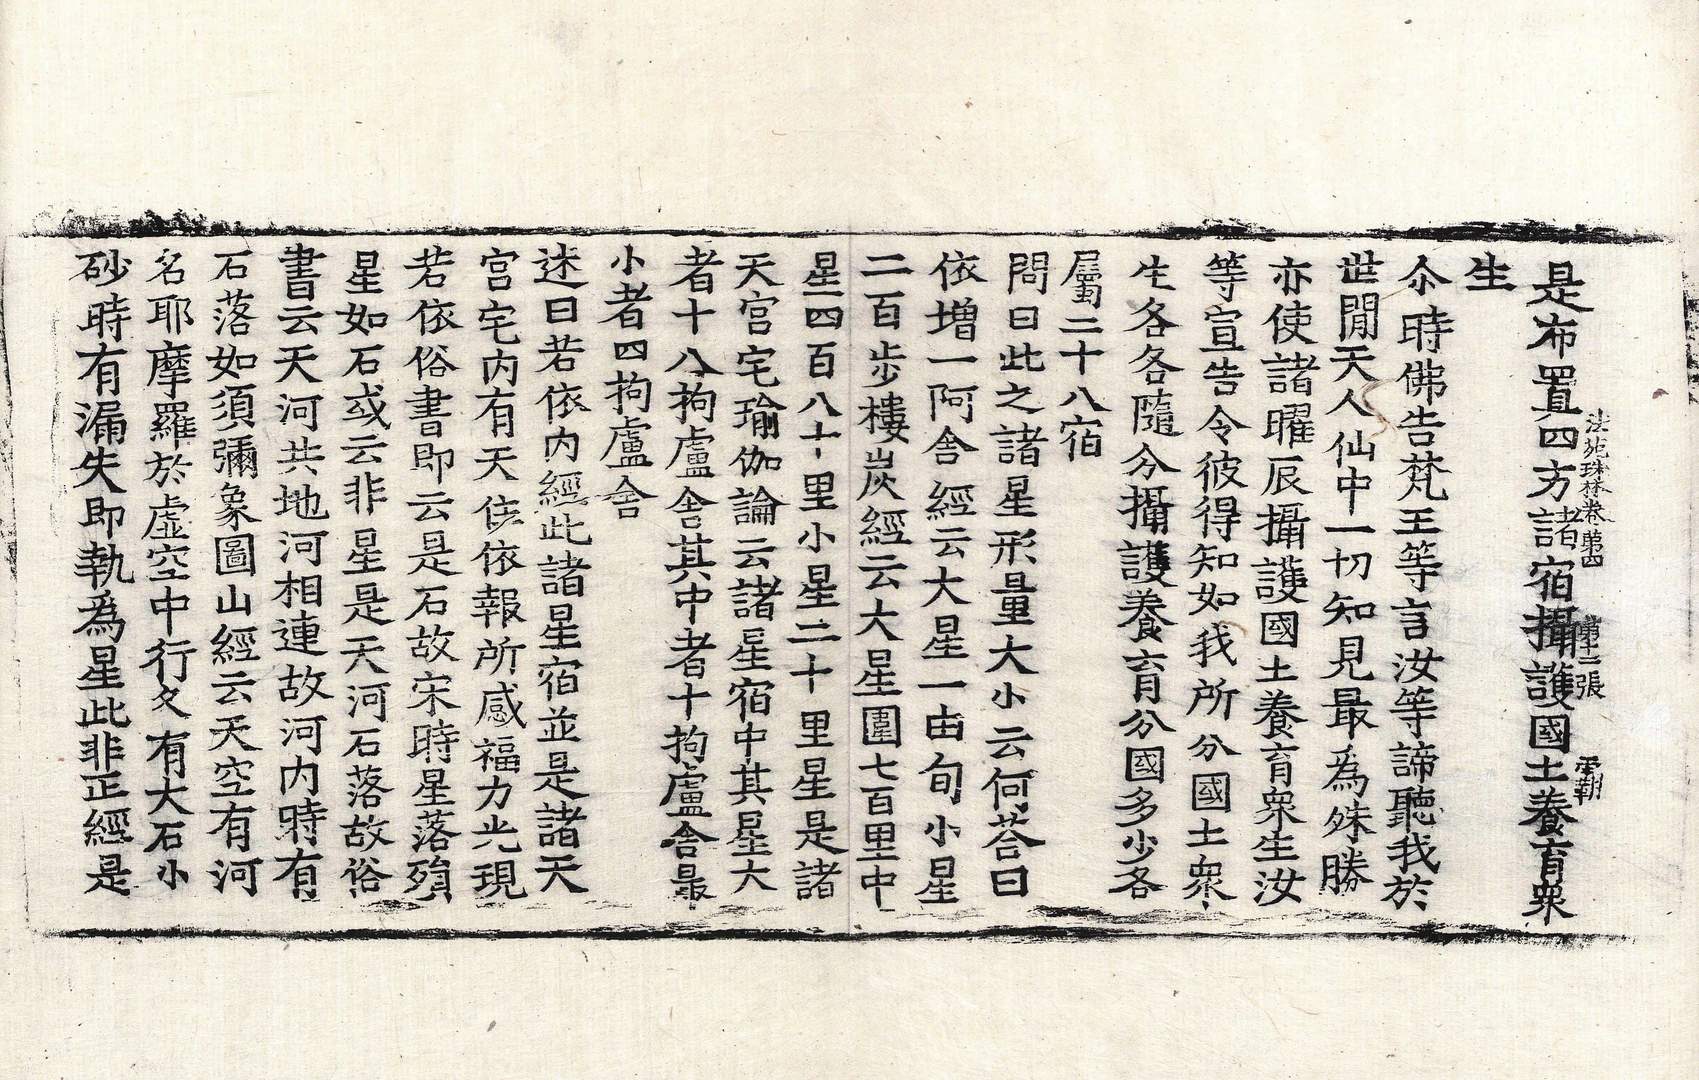 法苑珠林卷第四　第十二張　覇
是布置四方諸宿攝護國土養育衆
生
尒時佛告梵王等言汝等諦聽我於
世閒天人仙中一切知見最爲殊勝
亦使諸曜辰攝護國土養育衆生汝
等宣告令彼得知如我所分國土衆
生各各隨分攝護養育分國多少各
屬二十八宿
問曰此之諸星形量大小云何荅曰
依增一阿含經云大星一由旬小星
二百步樓炭經云大星圍七百里中
星四百八十里小星二十里星是諸
天宮宅瑜伽論云諸星宿中其星大
者十八拘盧舍其中者十拘盧舍最
小者四拘盧舍
述曰若依內經此諸星宿並是諸天
宮宅內有天住依報所感福力光現
若依俗書即云是石故宋時星落殞
星如石或云非星是天河石落故俗
書云天河共地河相連故河內時有
石落如須彌象圖山經云天空有河
名耶摩羅於虛空中行又有大石小
砂時有漏失即執爲星此非正經是